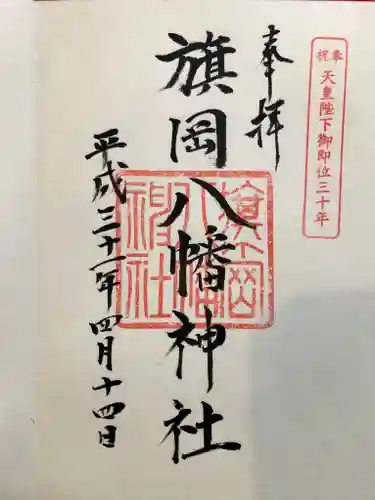 奉祝 天皇陛下御即位三十年
奉拝
旗岡八幡神社
平成三十一年四月十四日